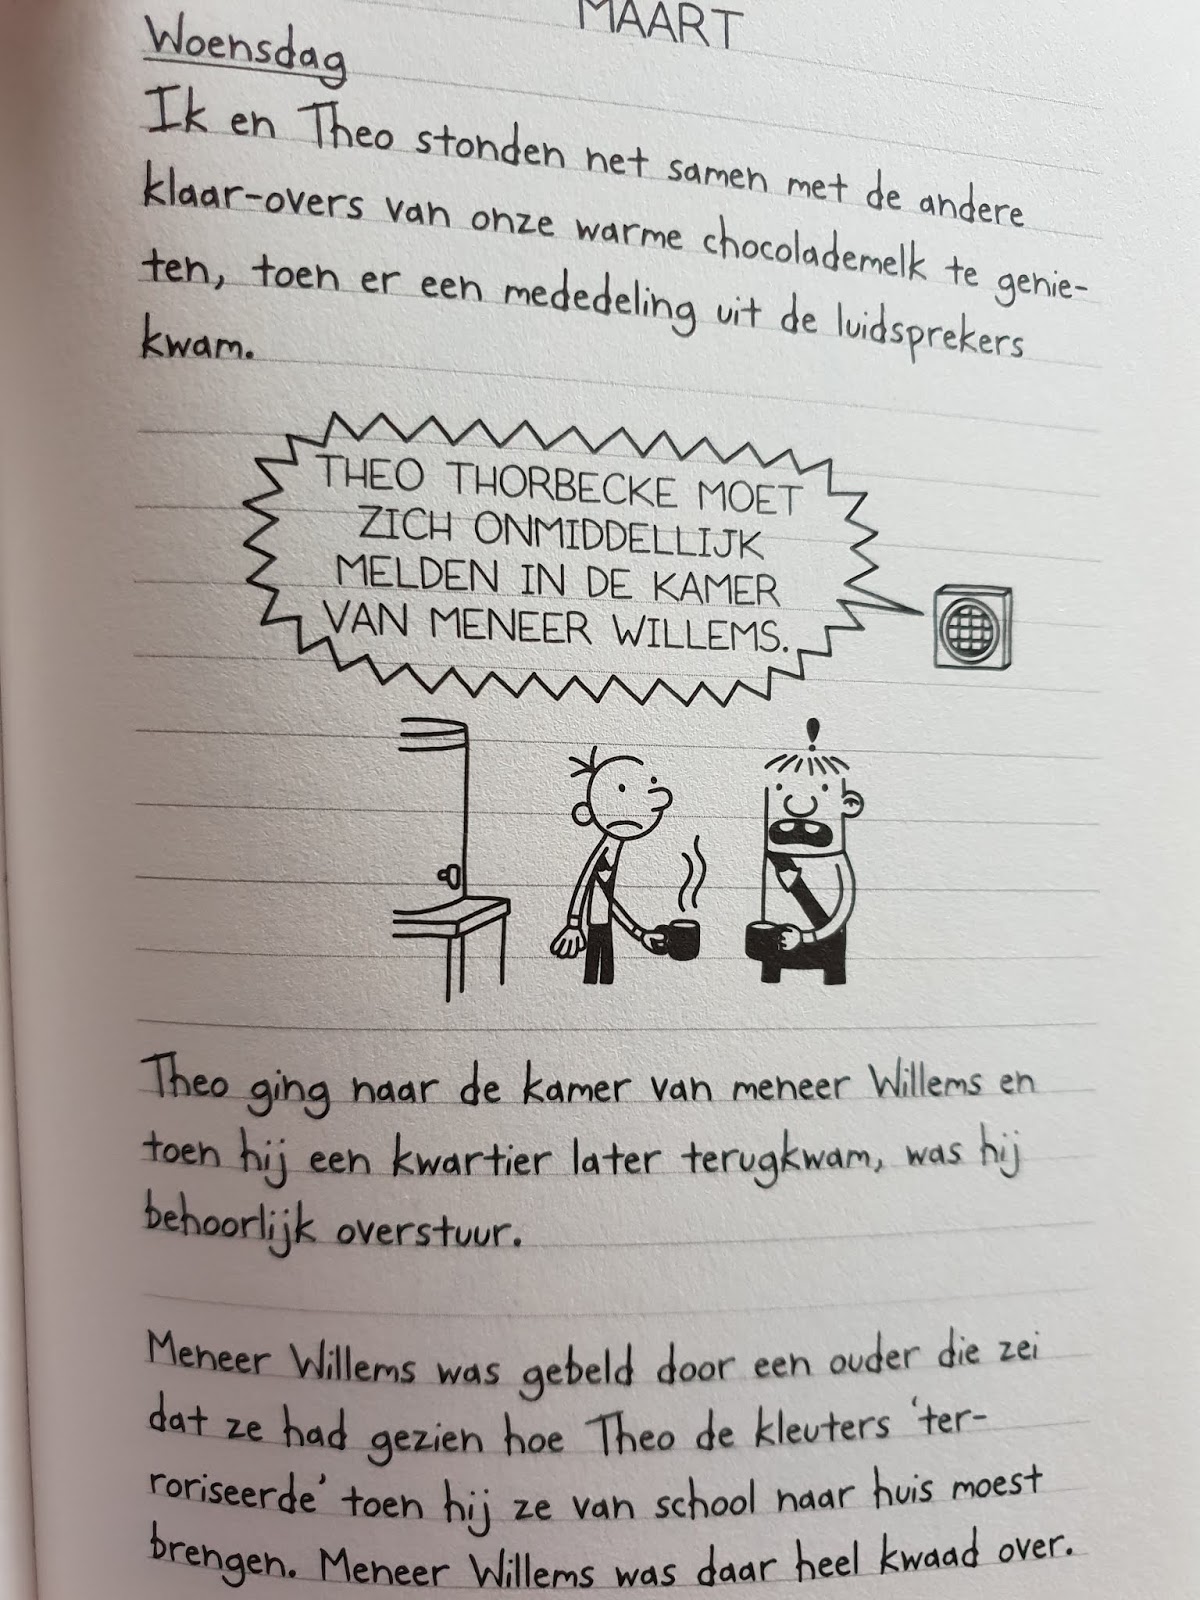 MAART
Woensdag
Ik en Theo stonden net samen met de andere
klaar-overs van onze warme chocolademelk te genie-
ten, toen er een mededeling uit de luidsprekers
kwam.
THEO THORBECKE MOET
ZICH ONMIDDELLIJK
MELDEN IN DE KAMER
VAN MENEER WILLEMS.
!
Theo ging naar de kamer van meneer Willems en
toen hij een kwartier later terugkwam, was hij
behoorlijk overstuur.
Meneer Willems was gebeld door een ouder die zei
dat ze had gezien hoe Theo de kleuters 'ter-
roriseerde' toen hij ze van school naar huis moest
brengen. Meneer Willems was daar heel kwaad over.